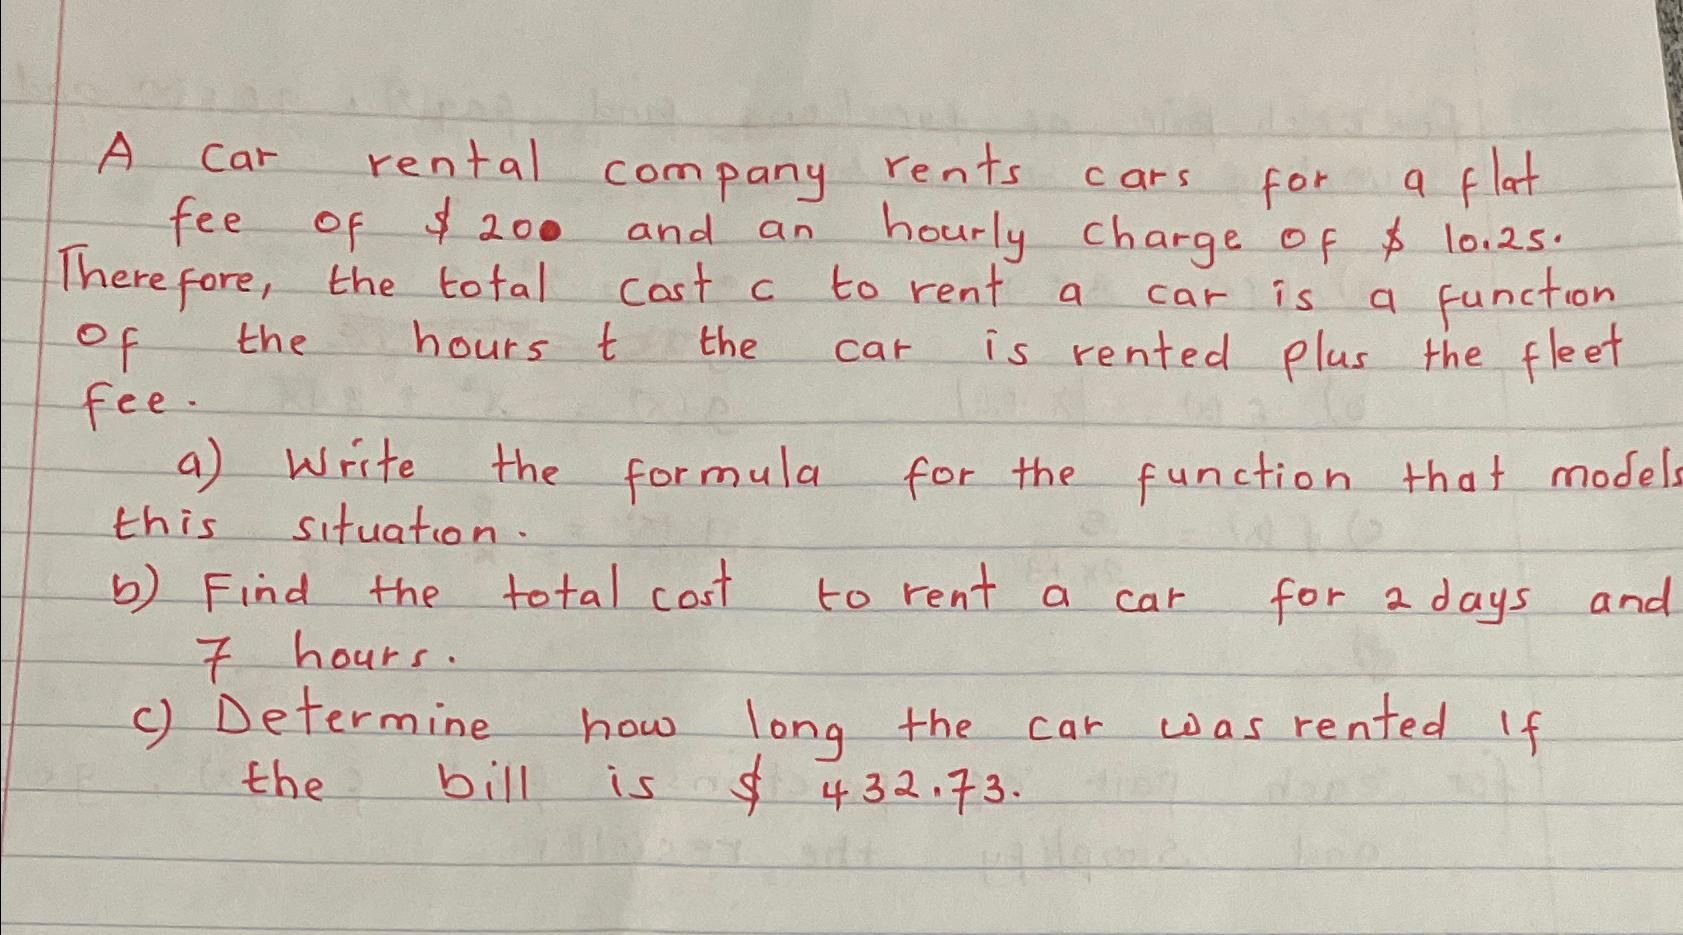 A car rental company rents cars for a flat
fee of $ 200 and an hourly charge of $ 10.25.
Therefore, the total cost c to rent a car is a function
of the hours t the car is rented plus the fleet
fee.
a) Write the formula for the function that models
this situation.
b) Find the total cost to rent a car for 2 days and
7 hours.
c) Determine how long the car was rented if
the bill is $ 432.73.